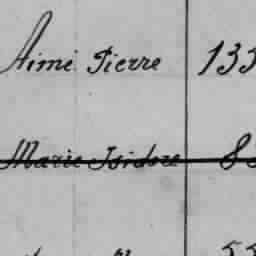 Aimé Pierre 133
Marie Isidore 8